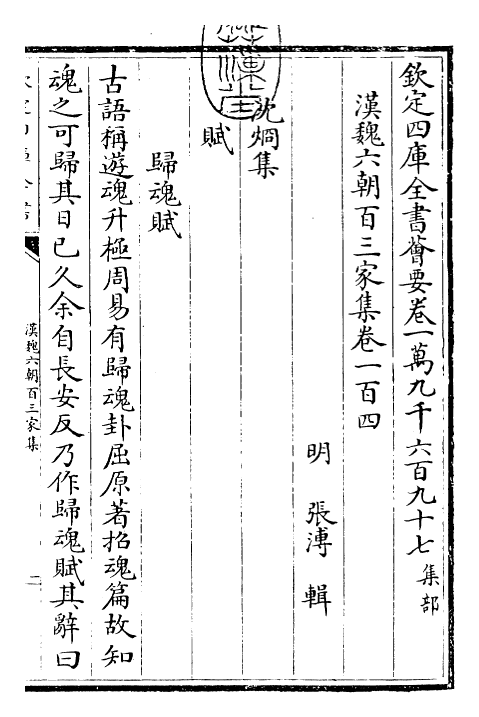 欽定四庫全書薈要卷一萬九千六百九十七集部
漢魏六朝百三家集卷一百四
明 張溥 輯
沈烱集
賦
歸魂賦
古語稱遊魂升極周易有歸魂卦屈原著招魂篇故知
魂之可歸其日已久余自長安反乃作歸魂賦其辭曰
漢魏六朝百三家集